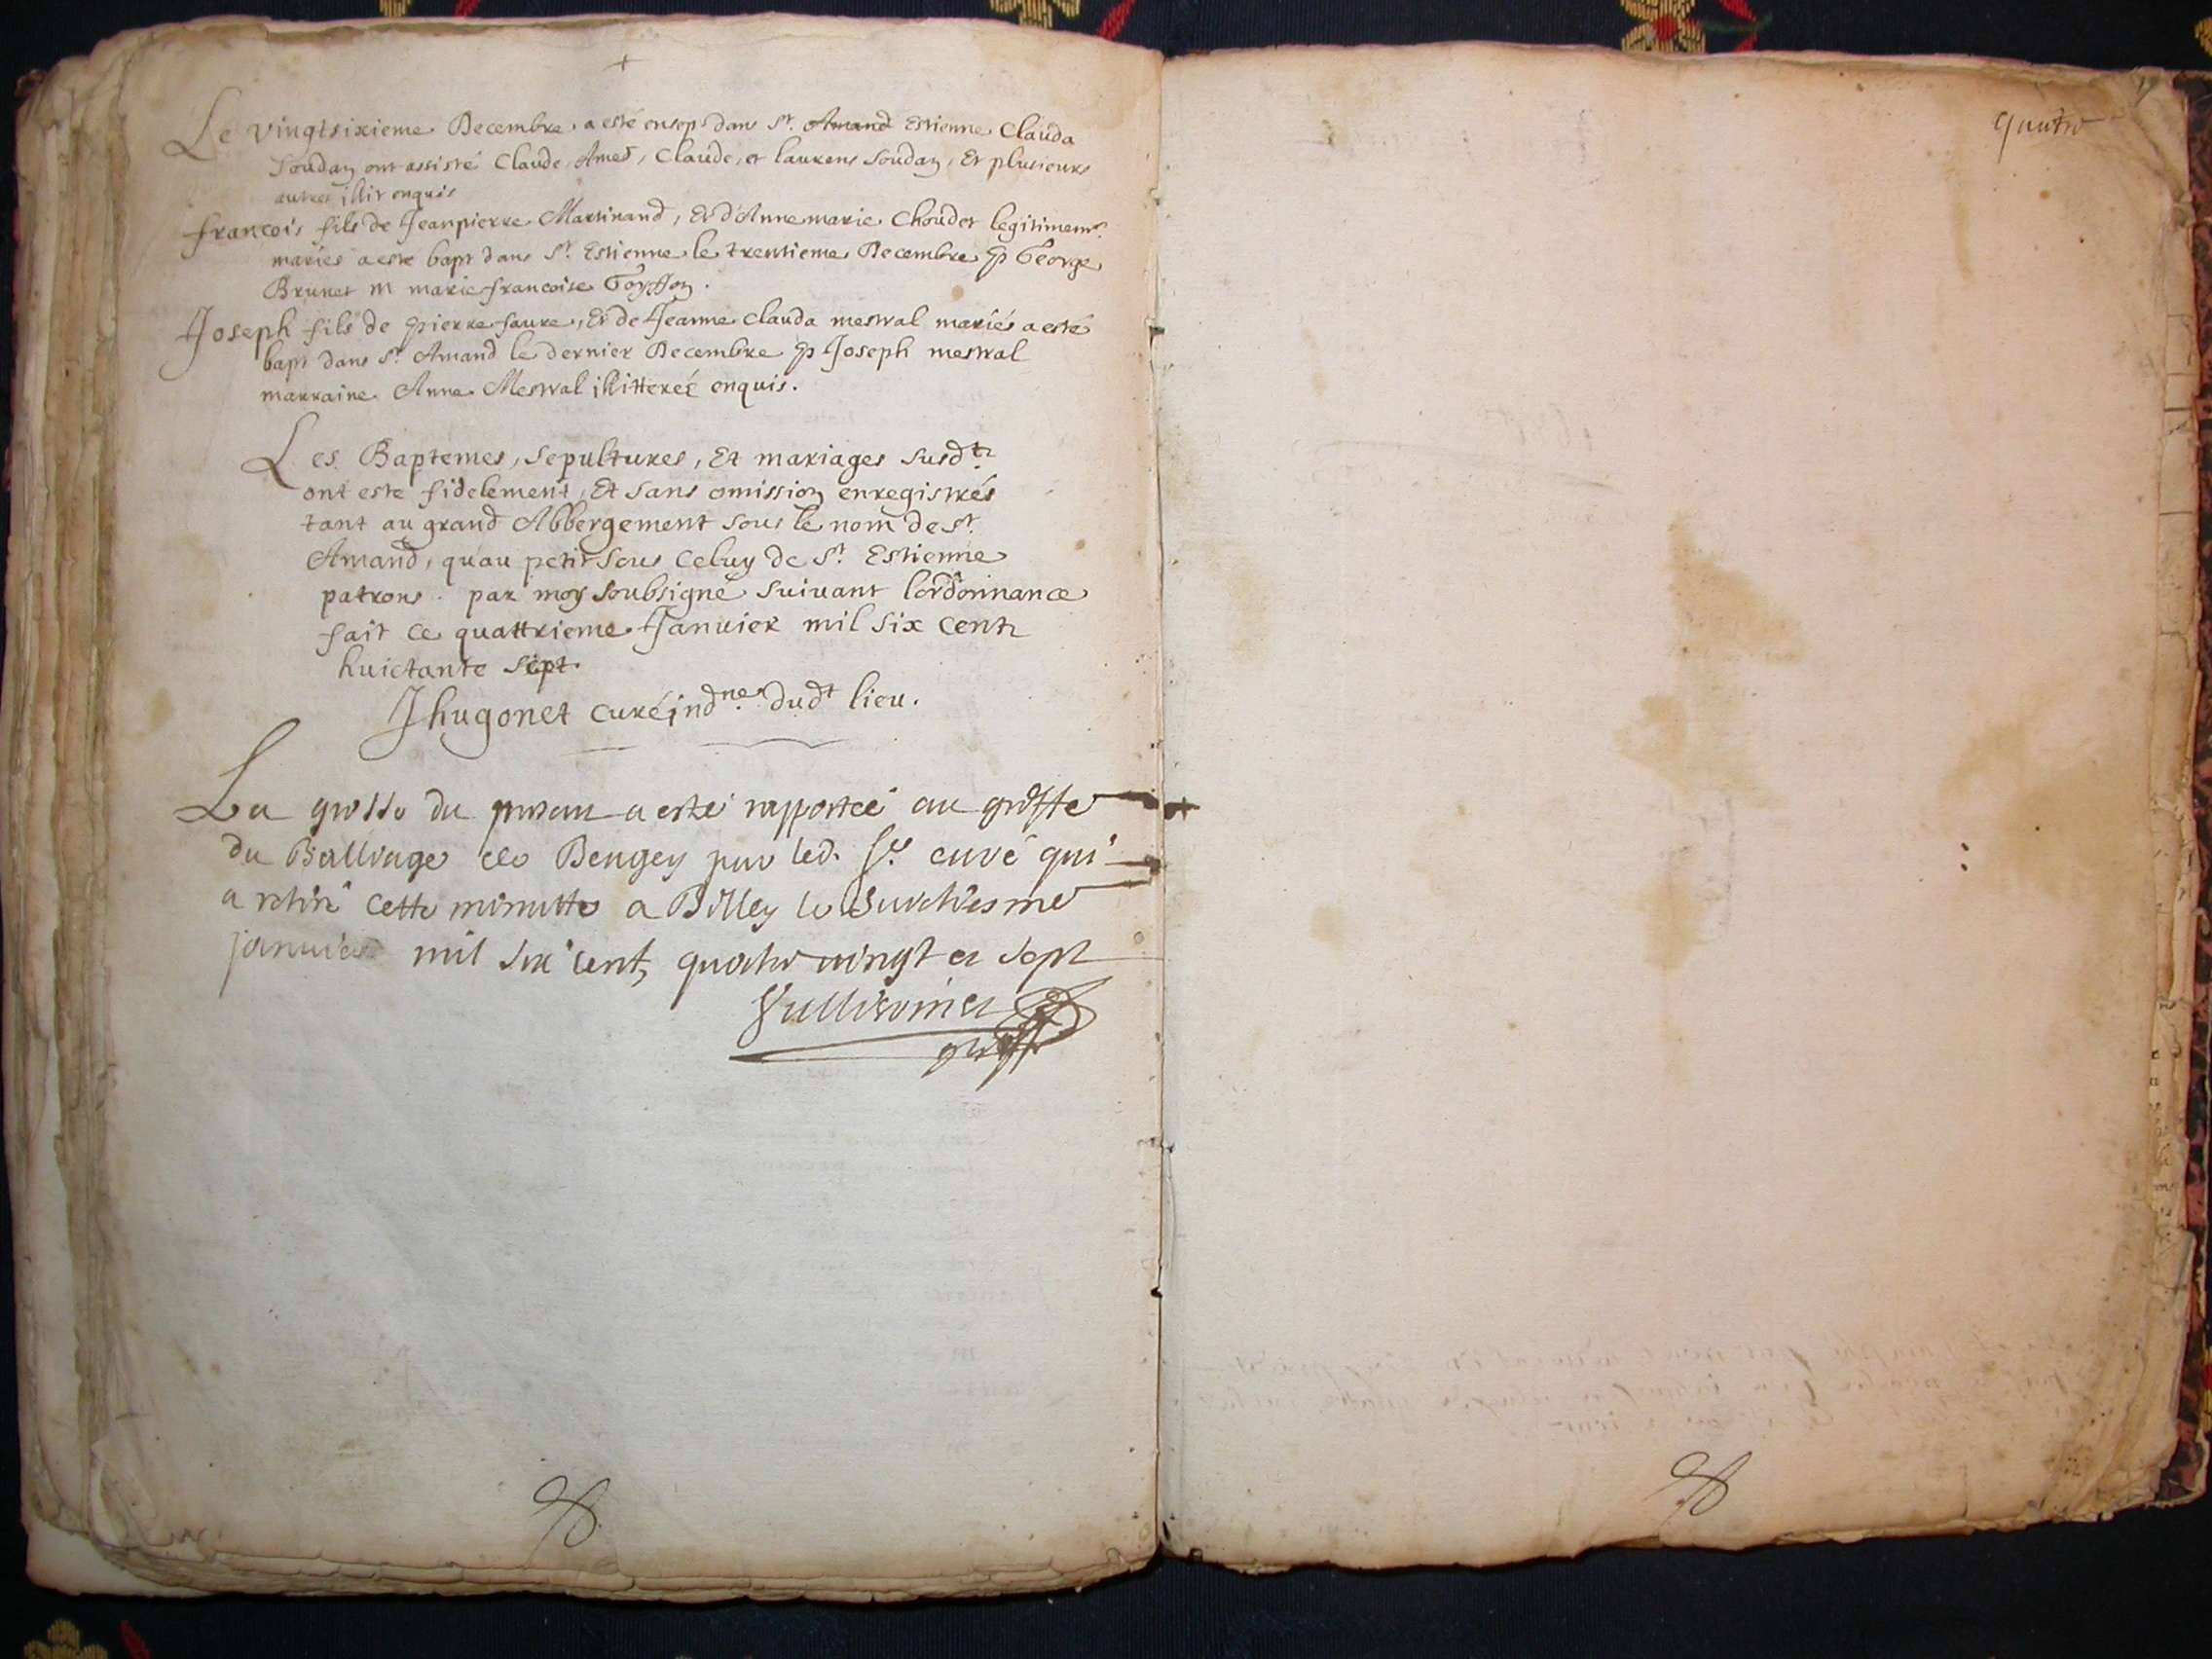 Le vingtsixieme Decembre a esté ensep dans St. Amand Estienne Clauda
Soudan ont assisté Claude, Amed, Claude, et laurens Soudan, Et plusieurs
autres illit enquis
francois fils de Jeanpierre Martinand, Et d'Annemarie Choudet legitimemt.
mariés a este bapt dans St. Estienne le trentieme Decembre P George
Brunet M marie francoise
Joseph fils de pierre faure, Et de Jeanne clauda mestral mariés a esté
bapt dans St Amand le dernier Decembre P Joseph mestral
marraine Anne Mestral illitereé enquis.
Les Baptemes, Sepultures, Et mariages susdts
ont este fidelement, Et sans omission enregistrés
tant au grand Abbergement sous le nom de St.
Amand, quau petit sous celuy de St. Estienne
patrons. par moy soubsigné suivant lordonnance
fait ce quattrieme Janvier mil six cents
huictante sept.
Jhugonet curé indne dudt lieu.
La grosse du a esté rapportée au greffe
du Balliage de Beugey par led. Sr. curé qui
a retiré cette minutte a Billey le
janvier mil six cent, quatre vingt et sept
greff
quatre